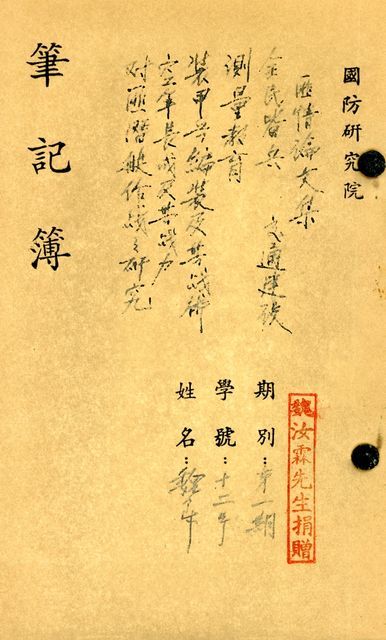 國防研究院
匪情論文集
全民皆兵 交通建設
測量教育
裝甲兵編裝及其戰術
空軍長成及其戰力
對匪潛艇作戰之研究
筆記簿
期別：第一期
學號：十二号
姓名：
魏汝霖先生捐贈